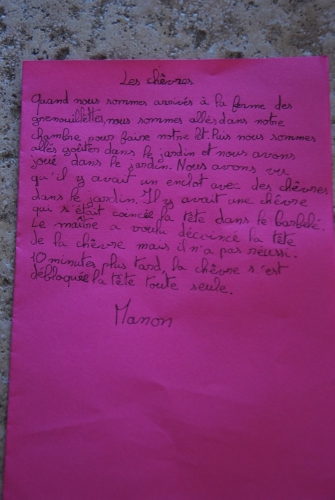 Les chèvres
Quand nous sommes arrivés à la ferme des
grenouillettes, nous sommes allés dans notre
chambre pour faire notre lit. Puis nous sommes
allés goûter dans le jardin et nous avons
joué dans le jardin. Nous avons vu
qu'il y avait un enclot avec des chèvres
dans le jardin. Il y avait une chèvre
qui s'était coincée la tête dans le barbelé.
Le maître a voulu décoincé la tête
de la chèvre mais il n'a pas réussi.
10 minutes plus tard, la chèvre s'est
débloquée la tête toute seule.
Manon